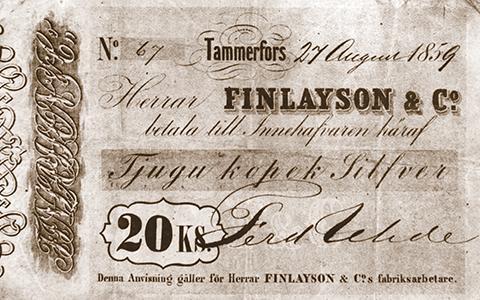 No. 67 Tammerfors 27 August 1859
Herrar FINLAYSON & Co.
betala till Innehafvaren häraf
Tjugu kopek Silfver
20 KS. Ferd Uhde
Denna Anvisning gäller för Herrar FINLAYSON & Co.s fabriksarbetare.